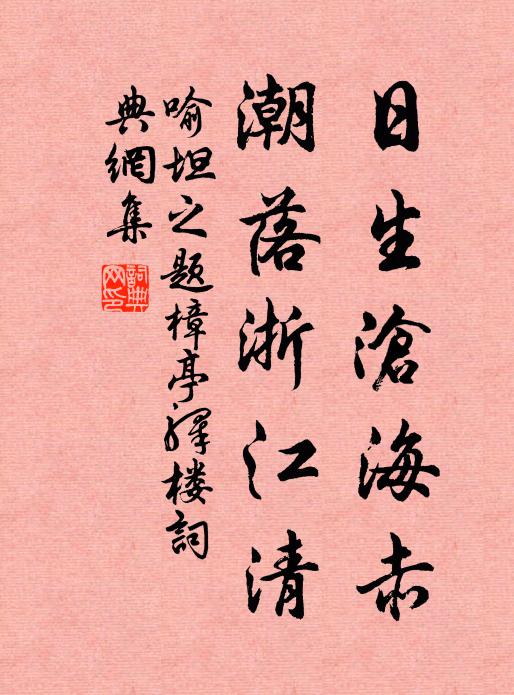 日生滄海赤
潮落浙江清
喻坦之題樟亭驛楼詞
典網集
詞典
网印